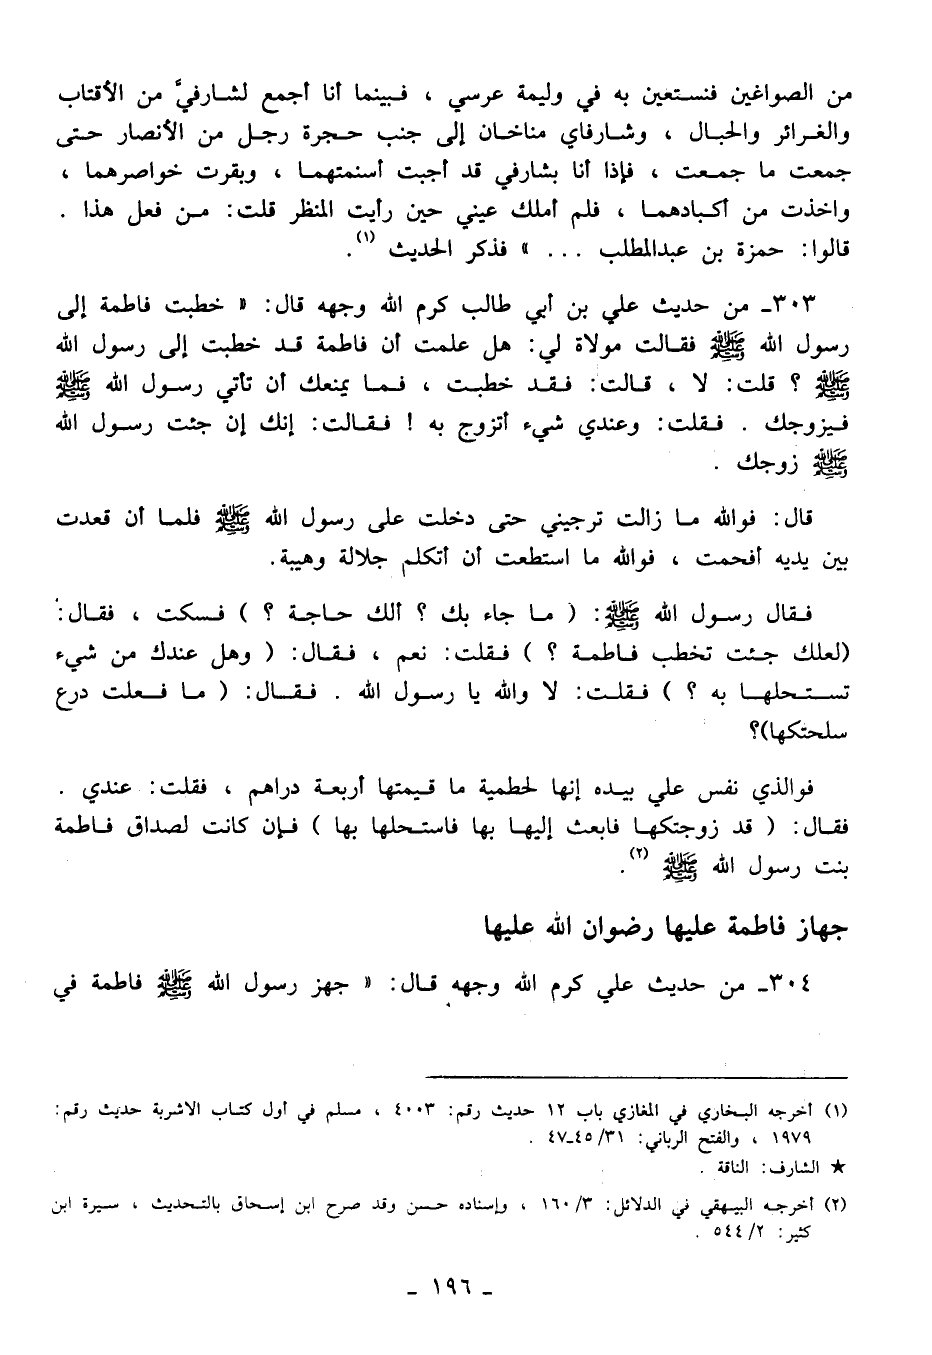 من الصواغين فنستعين به في وليمة عرسي ، فبينما أنا أجمع لشارفيَّ من الأقتاب
والغرائر والحبال ، وشارفاي مناخان إلى جنب حجرة رجل من الأنصار حتى
جمعت ما جمعت ، فإذا أنا بشارفي قد أجبت أسنمتهما ، وبقرت خواصرهما ،
واخذت من أكبادهما ، فلم أملك عيني حين رأيت المنظر قلت: من فعل هذا .
قالوا: حمزة بن عبدالمطلب ... » فذكر الحديث (١).
٣٠٣ـ من حديث علي بن أبي طالب كرم الله وجهه قال: « خطبت فاطمة إلى
رسول الله ﷺ فقالت مولاة لي: هل علمت أن فاطمة قد خطبت إلى رسول الله
ﷺ ؟ قلت: لا ، قالت: فقد خطبت ، فما يمنعك أن تأتي رسول الله ﷺ
فيزوجك . فقلت: وعندي شيء أتزوج به ! فقالت: إنك إن جئت رسول الله
ﷺ زوجك .
قال: فوالله ما زالت ترجيني حتى دخلت على رسول الله ﷺ فلما أن قعدت
بين يديه أفحمت ، فوالله ما استطعت أن أتكلم جلالة وهيبة.
فقال رسول الله ﷺ: ( ما جاء بك ؟ ألك حاجة ؟ ) فسكت ، فقال:
(لعلك جئت تخطب فاطمة ؟ ) فقلت: نعم ، فقال: ( وهل عندك من شيء
تستحلها به ؟ ) فقلت: لا والله يا رسول الله . فقال: ( ما فعلت درع
سلحتكها)؟
فوالذي نفس علي بيده إنها لحطمية ما قيمتها أربعة دراهم ، فقلت: عندي .
فقال: ( قد زوجتكها فابعث إليها بها فاستحلها بها ) فإن كانت لصداق فاطمة
بنت رسول الله ﷺ (٢).
جهاز فاطمة عليها رضوان الله عليها
٣٠٤ـ من حديث علي كرم الله وجهه قال: « جهز رسول الله ﷺ فاطمة في
(١) أخرجه البخاري في المغازي باب ١٢ حديث رقم: ٤٠٠٣ ، مسلم في أول كتاب الاشربة حديث رقم:
١٩٧٩ ، والفتح الرباني: ٤٥/٣١ـ٤٧ .
★ الشارف: الناقة .
(٢) أخرجه البيهقي في الدلائل: ١٦٠/٣ ، وإسناده حسن وقد صرح ابن إسحاق بالتحديث ، سيرة ابن
كثير: ٥٤٤/٢ .
ـ ١٩٦ ـ